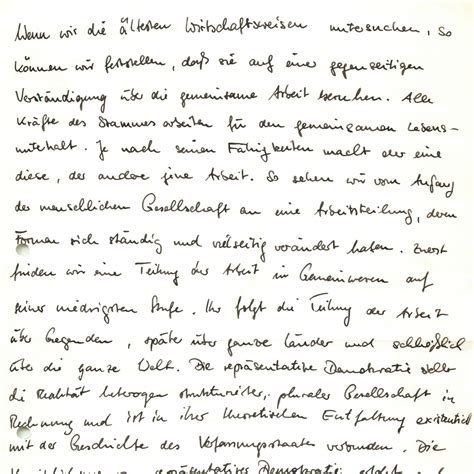 Wenn wir die ältesten Wirtschaftsweisen untersuchen, so
können wir feststellen, daß sie auf eine gegenseitigen
Verständigung über die gemeinsame Arbeit beruhen. Alle
Kräfte des Stammes arbeiten für den gemeinsamen Lebens-
unterhalt. Je nach seinen Fähigkeiten macht der eine
diese, der andere jene Arbeit. So sehen wir vom Anfang
der menschlichen Gesellschaft an eine Arbeitsteilung, deren
Formen sich ständig und vielseitig verändert haben. Zuerst
finden wir eine Teilung der Arbeit in Gemeinwesen auf
seiner niedrigsten Stufe. Ihr folgt die Teilung der Arbeit
über Gegenden, später über ganze Länder und schließlich
über die ganze Welt. Die repräsentative Demokratie stellt
die Realität heterogen strukturierter, pluraler Gesellschaft in
Rechnung und ist in ihrer theoretischen Entfaltung existentiell
mit der Geschichte des Verfassungsstaates verbunden. Die
repräsentativer Demokratie